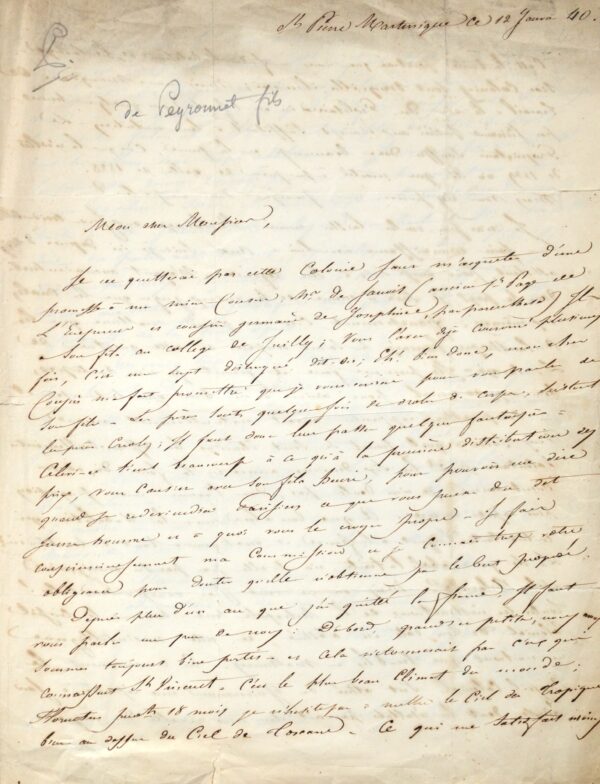 St Pierre Martinique ce 12 Janvr 40.
de Peyronnet fils
Mon cher Monsieur,
Je ne quitterai pas cette Colonie sans m'acquitter d'une
promesse à un mien Cousin, Mr. de (ancien 1er Page de
L'Empereur et cousin germain de Joséphine, par parenthèse) Il
a son fils au collège de Juilly; Vous l'avez déjà couronné plusieurs
fois, C'est un sujet distingué dit-on; Eh! bien donc, mon cher
Cousin m'a fait promettre que je vous pour vous parler de
son fils - Les pères sont quelquefois de drôles de corps, surtout
les pères ; Il faut donc leur passer quelque fantaisie -
Celui-ci tient beaucoup à ce qu'à la première distribution des
prix, vous causiez avec son fils Henri, pour pouvoir me dire
quand je reviendrai Parisien ce que vous pensez de
jeune homme et à quoi vous le croyez propre - Je fais
consciencieusement ma Commission et je connais trop votre
obligeance pour douter qu'elle n'obtienne pas le but proposé.
Depuis plus d'un an que j'ai quitté la france, Il faut
vous parler un peu de nous: D'abord, grands et petits, nous nous
sommes toujours bien portés - et cela n'étonnerait pas ceux qui
connaissent St Vincent - C'est le plus beau Climat du monde:
18 mois je n'hésite pas à mettre le Ciel du Tropique
bien au dessus du Ciel de Toscane - Ce qui me satisfait moins